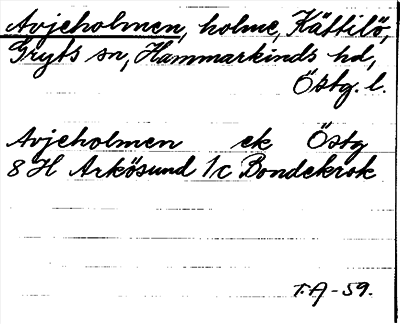 Avjeholmen, holme, Kättilö,
Gryts sn, Hammarkinds hd,
Östg. l.
Avjeholmen ek Östg
8 H Arkösund 1/c Bondekrok
T.A-59.